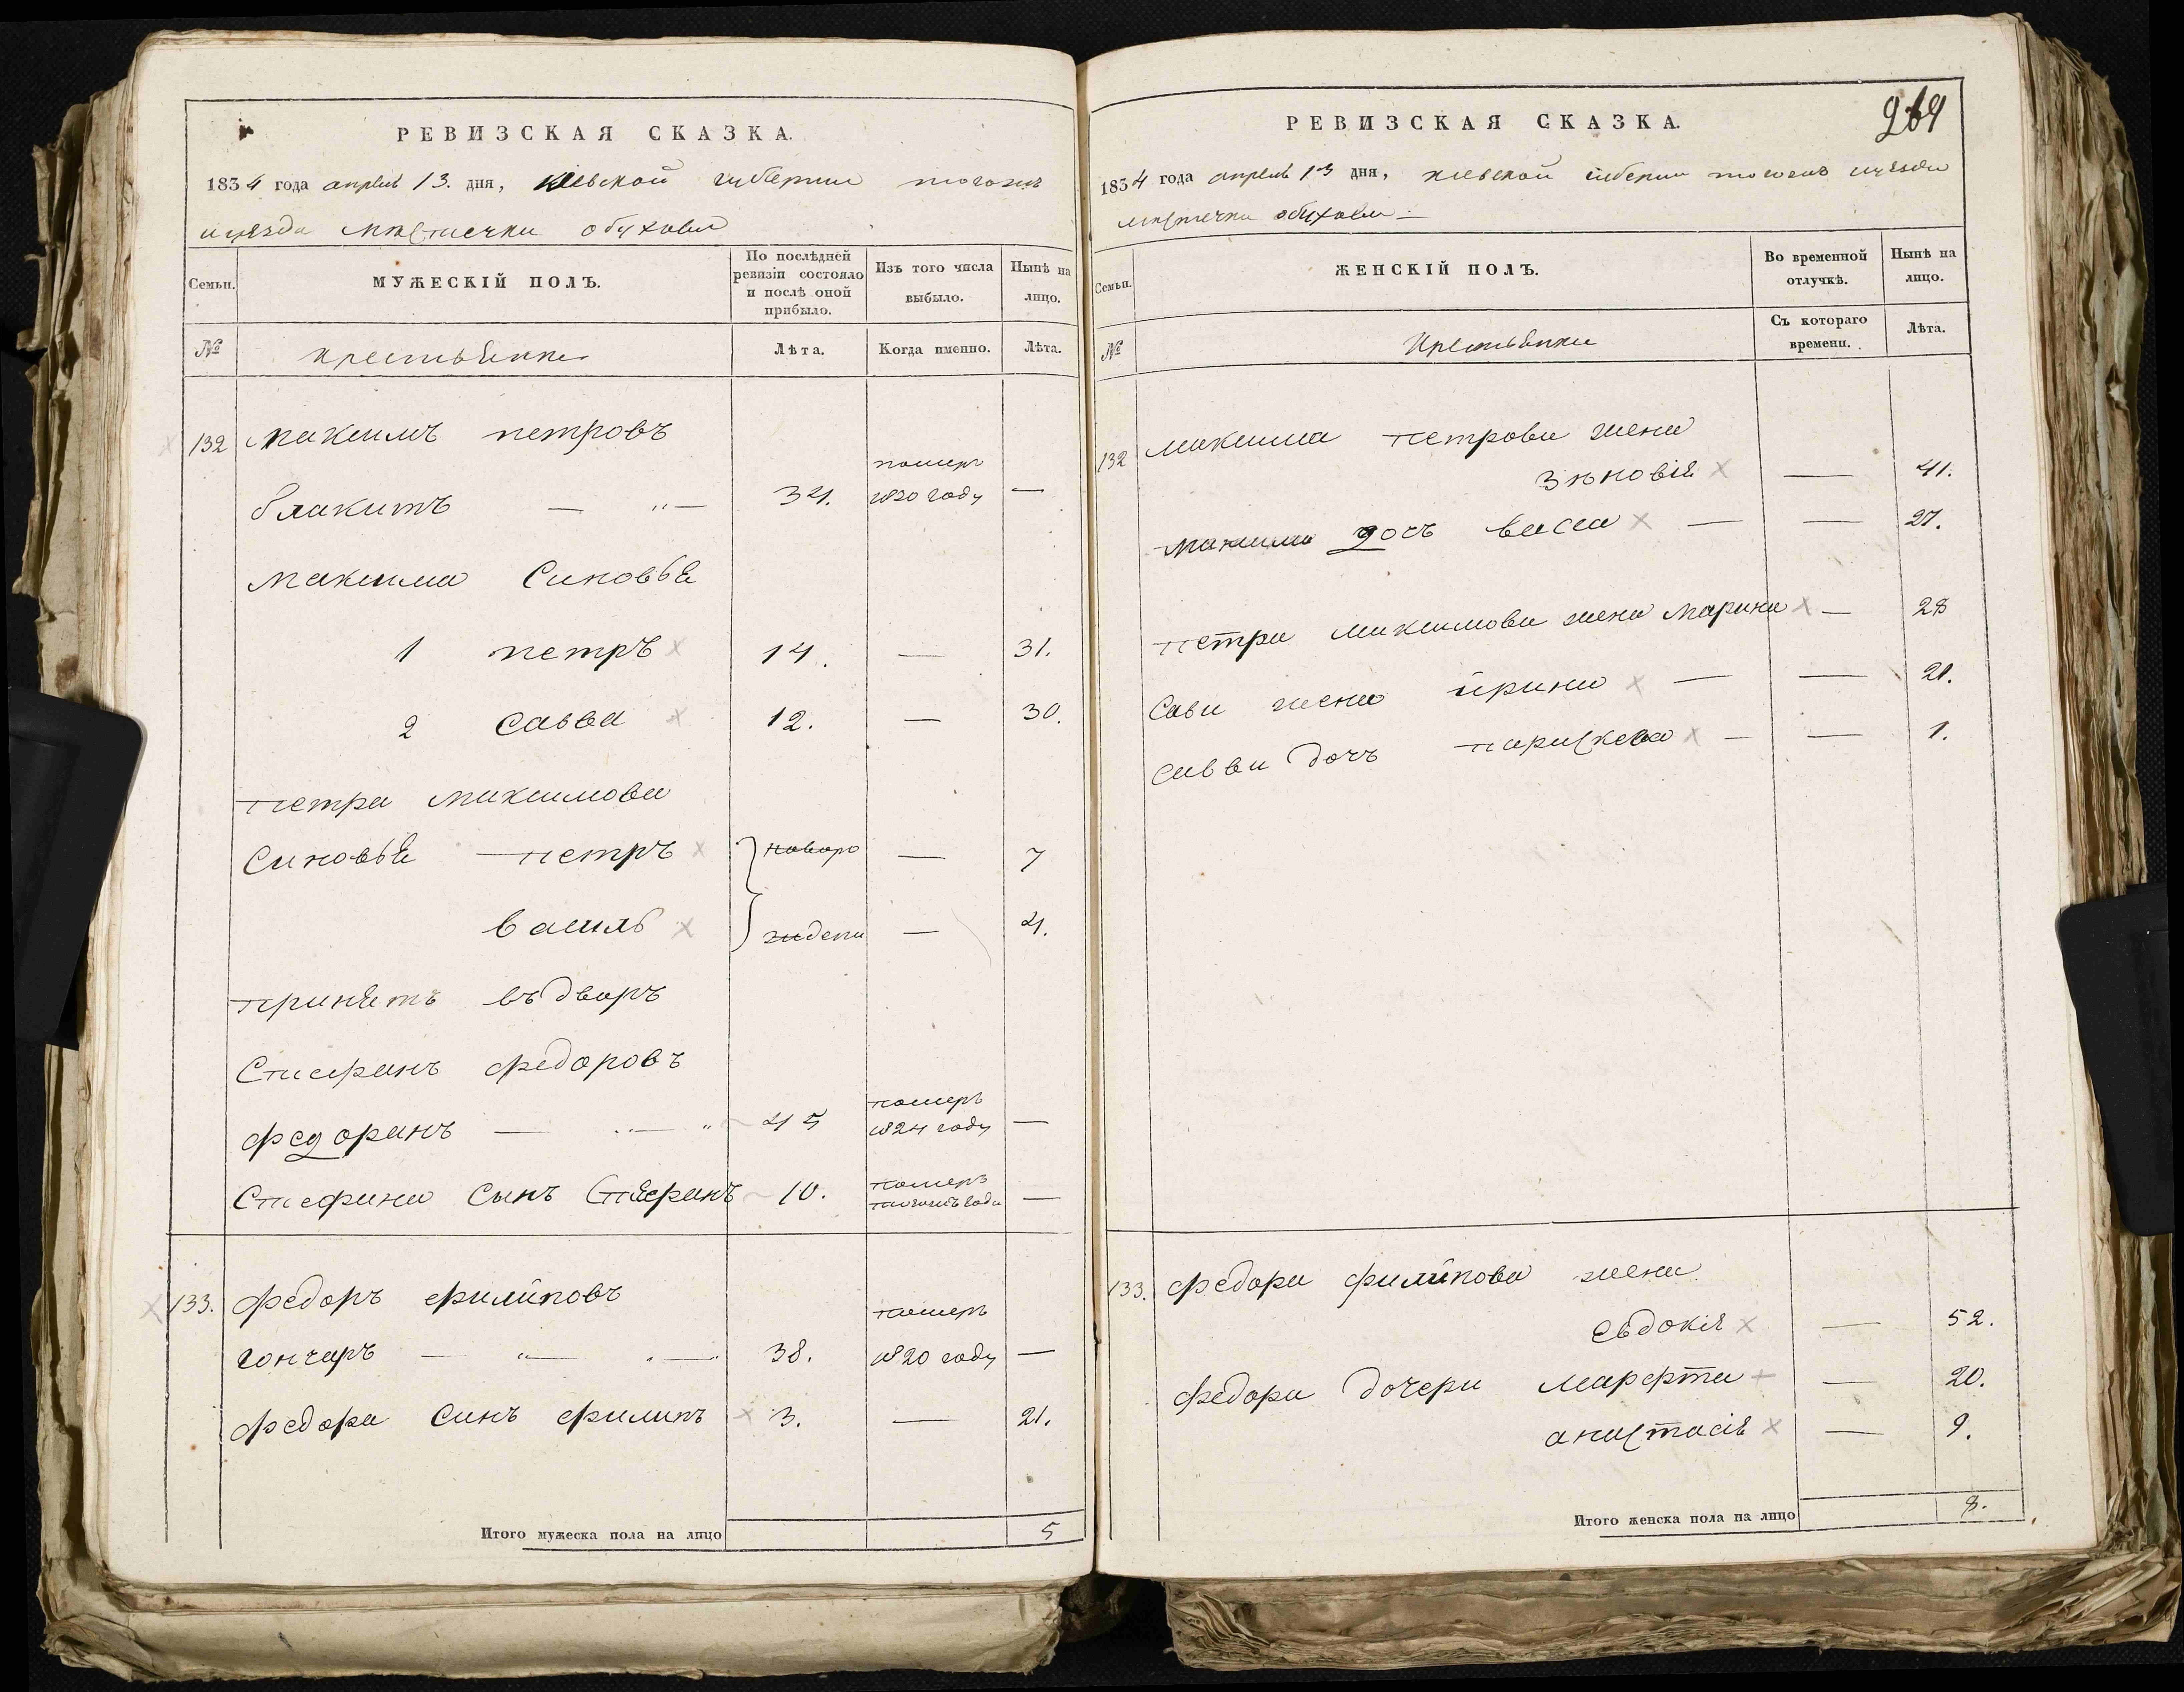 РЕВИЗСКАЯ СКАЗКА.
1834 года апреля 13. дня, киевской губернии тогожъ
уезда местечка обухова
Семьи.
МУЖЕСКІЙ ПОЛЪ.
По послѣдней ревизіи состояло и послѣ оной прибыло.
Изъ того числа выбыло.
Нынѣ на лицо.
№ крестьяне Лѣта. Когда именно. Лѣта.
132 максимъ петровъ
померъ
блакитъ — „— 34. 1820 году —
максима синовья
1 петръ 14. — 31.
2 савва 12. — 30.
петра максимова
синовья петръ новоро — 7
василь ждени — 4.
принятъ въ дворъ
Стефанъ федоровъ
померъ
федоранъ — „— „ 45 1824 году —
померъ
Стефана сынъ Стефанъ 10. тогожъ года —
133. федоръ филиповъ
померъ
гончаръ — „— „— 38. 1820 году —
федора синъ филипъ 3. — 21.
Итого мужеска пола на лицо 5
264
РЕВИЗСКАЯ СКАЗКА.
1834 года апреля 13 дня, киевской губернии тогожъ уезда
местечка обухова —
Семьи.
ЖЕНСКІЙ ПОЛЪ.
Во временной отлучкѣ.
Нынѣ на лицо.
№ Крестьянки Съ котораго времени. Лѣта.
132 максима петрова жена
зѣновія — 41.
максима дочъ васса — — 27.
петра максимова жена марина — 28
Сави жена ирина — — 21.
савви дочъ параскева — — 1.
133. федора филипова жена
евдокія — 52.
федора дочери марфта — 20.
анастасія — 9.
Итого женска пола на лицо 8.